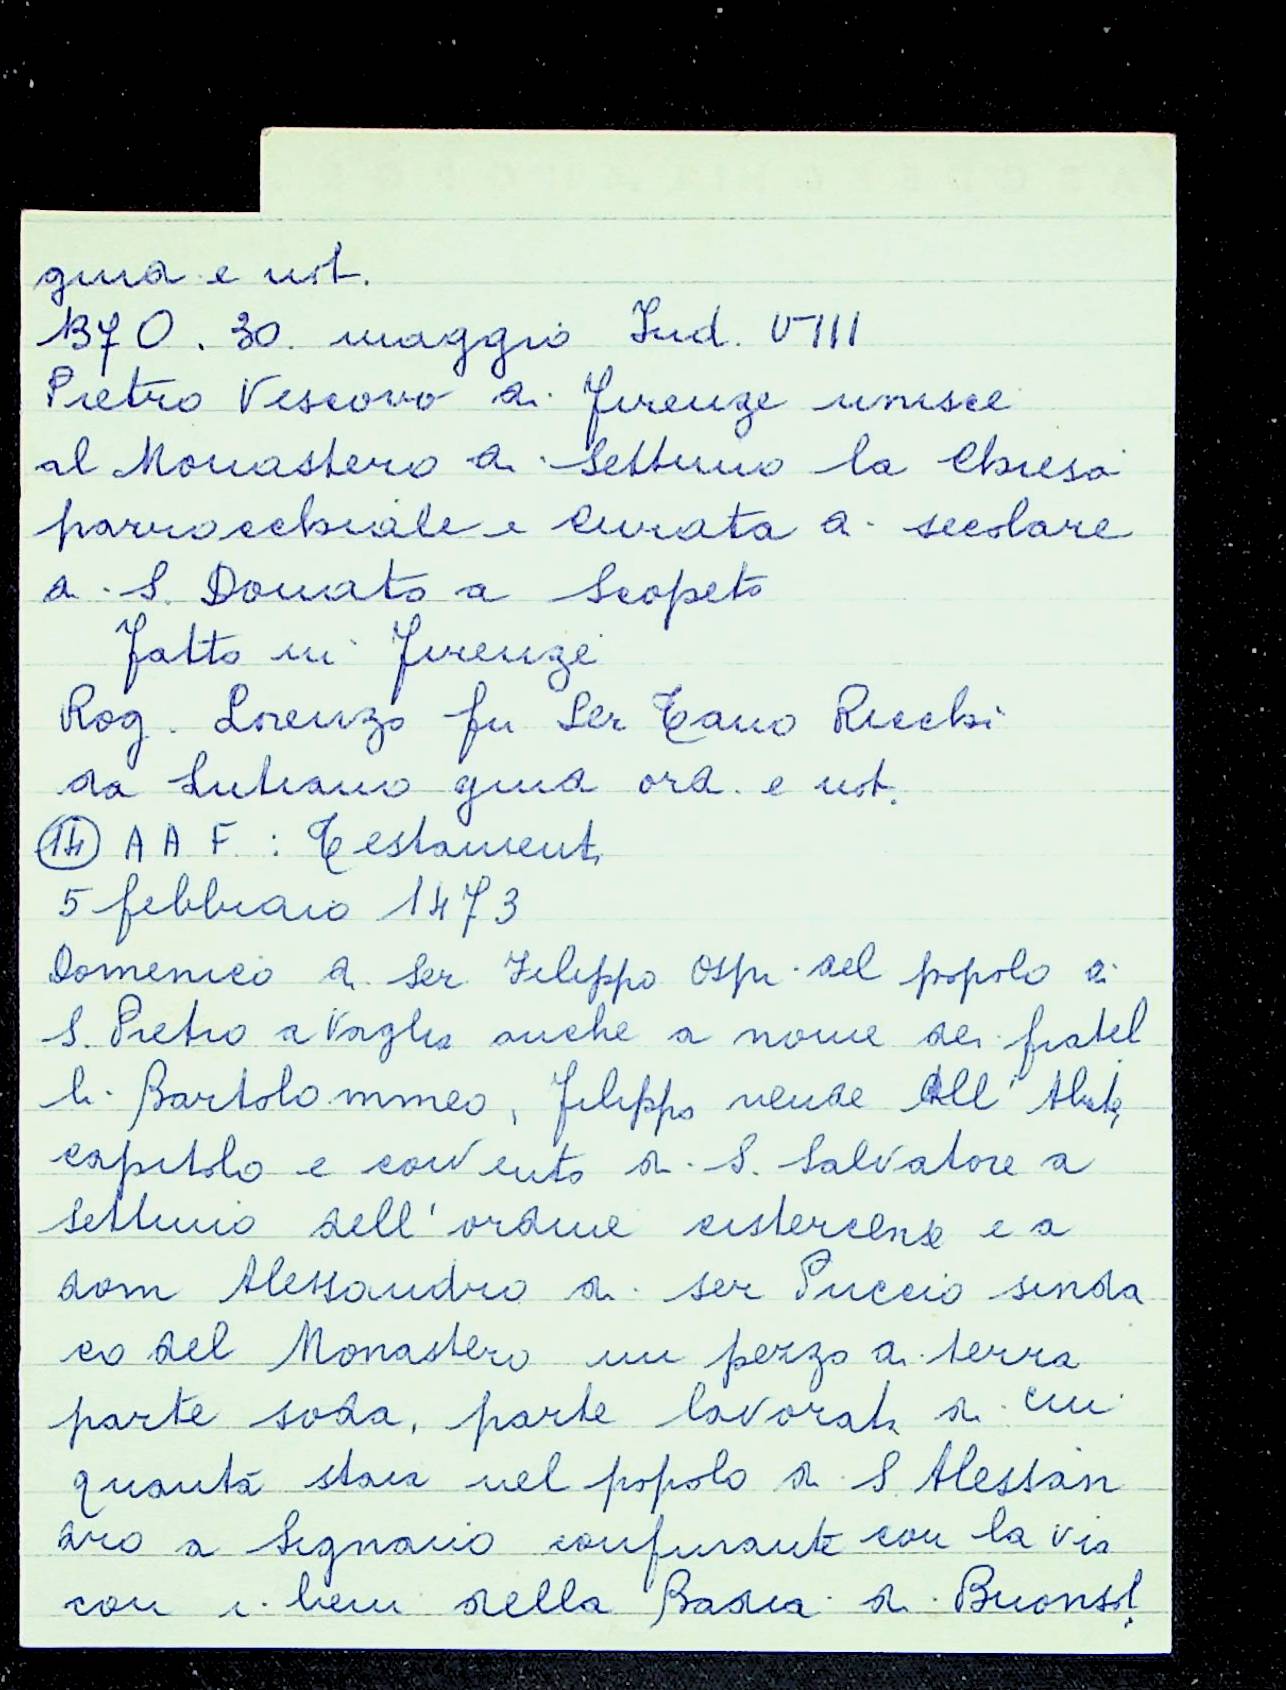 giud e not.
1370. 30. maggio Ind. VIII
Pietro Vescovo di Firenze unisce
al Monastero di Settimo la Chiesa
parrocchiale e curata di secolare
di S. Donato a Scopeto
Fatto in Firenze
Rog. Lorenzo fu Ser Tano Recchi
da Lutiano giud ord. e not.
14 A A F. : Testamenti
5 febbraio 1473
Domenico di Ser Filippo Ospi del popolo di
S. Pietro a Vaglia anche a nome dei fratel
li Bartolommeo, Filippo vende all' Abate,
capitolo e convento di S. Salvatore a
Settimo dell' ordine cistercense e a
dom Alessandro di ser Puccio sinda
co del Monastero un pezzo di terra
parte soda, parte lavorata di cin
quanta staia nel popolo di S. Alessan
dro a Signano confinante con la via
con i beni della Badia di Buonsol